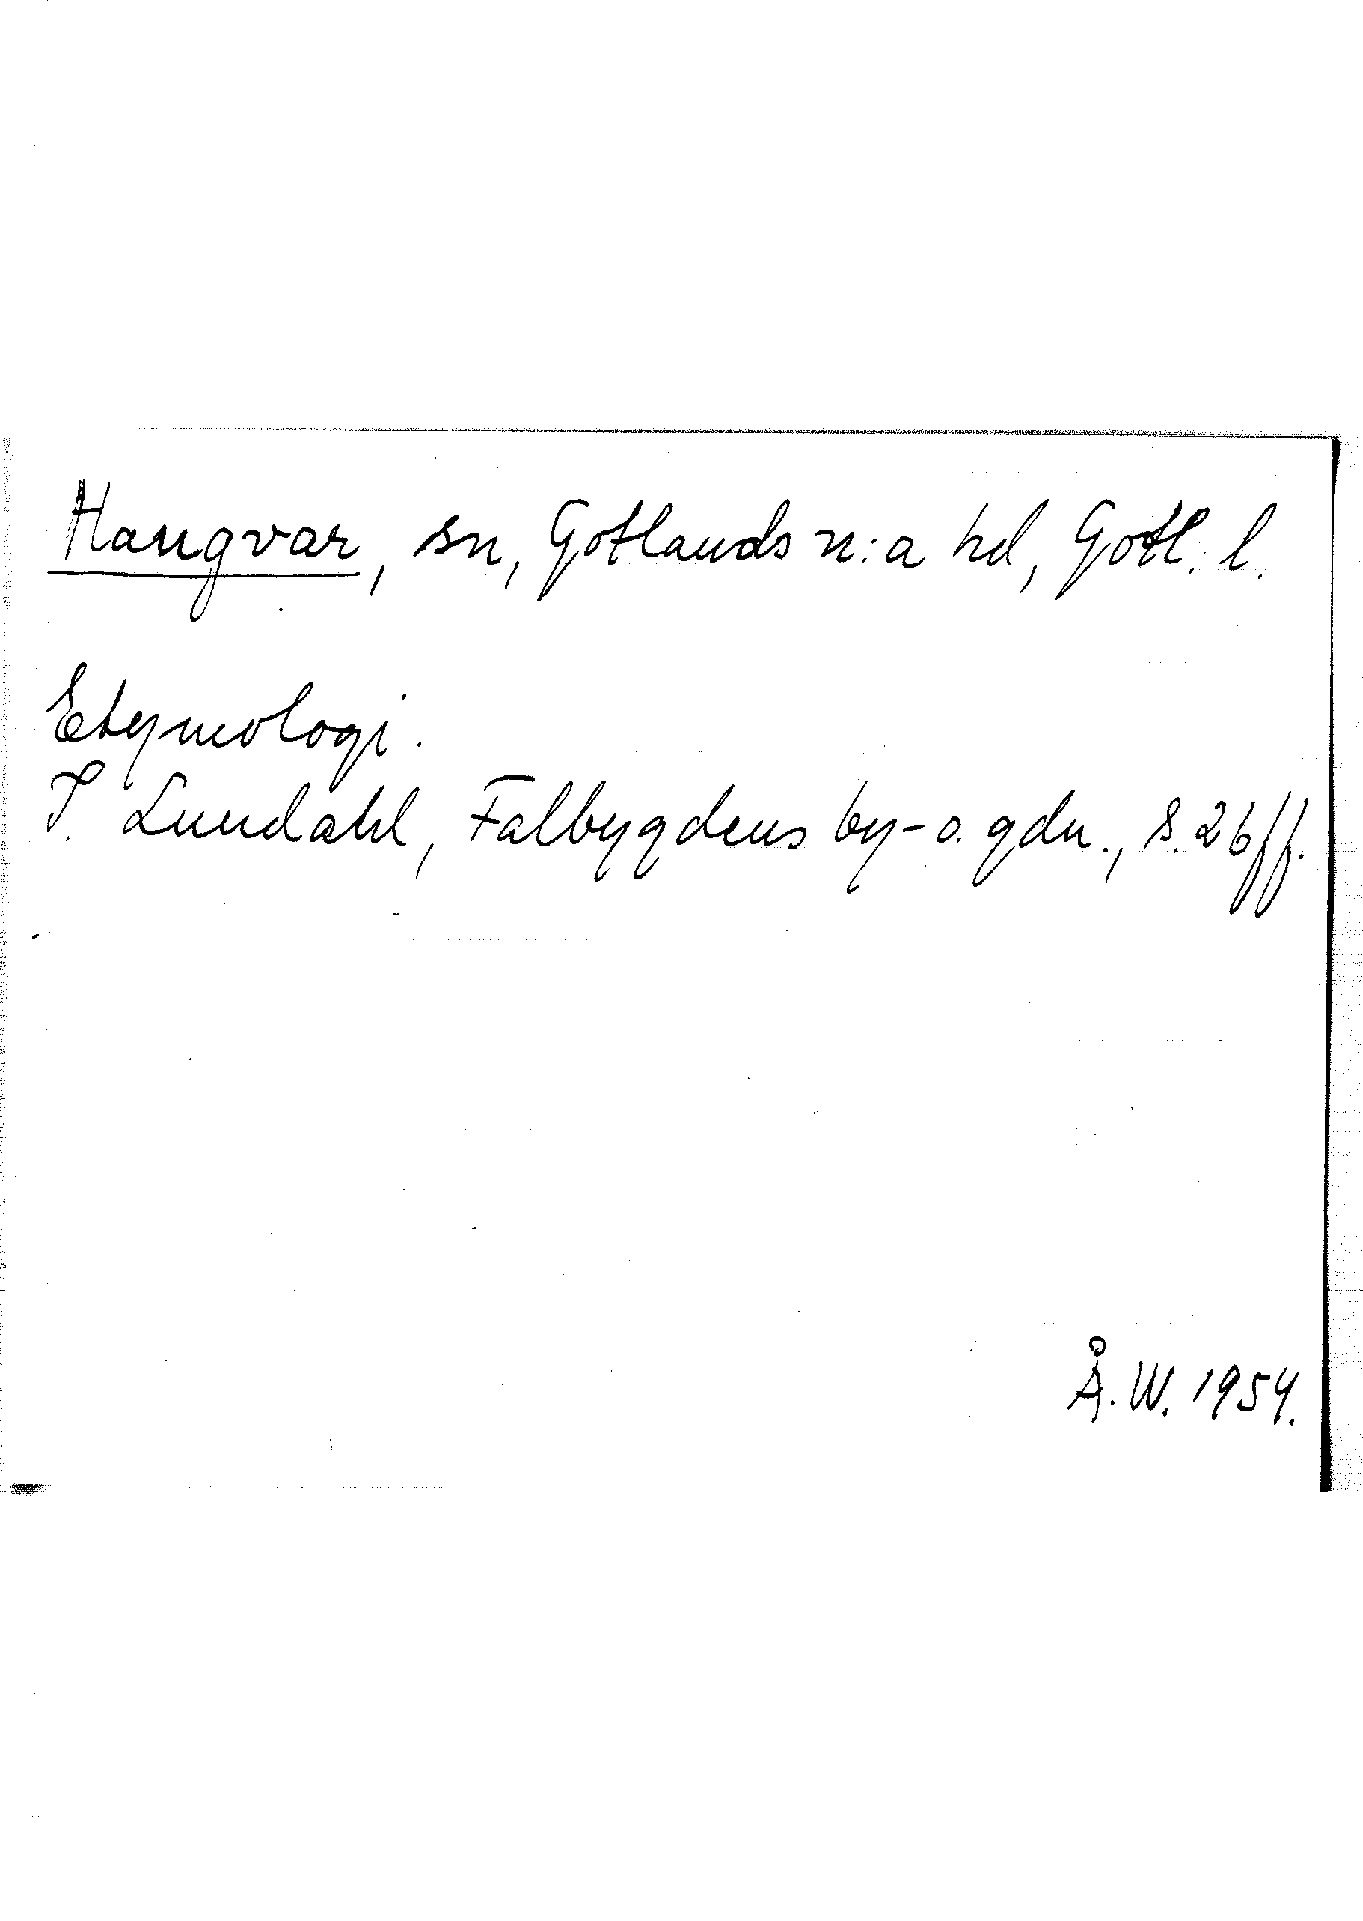 Hangvar, sn, Gotlands n:a hd, Gotl. l.
Etymologi.
I. Lundahl, Falbygdens by- o. gdn., s. 26 ff.
Å. W. 1954.